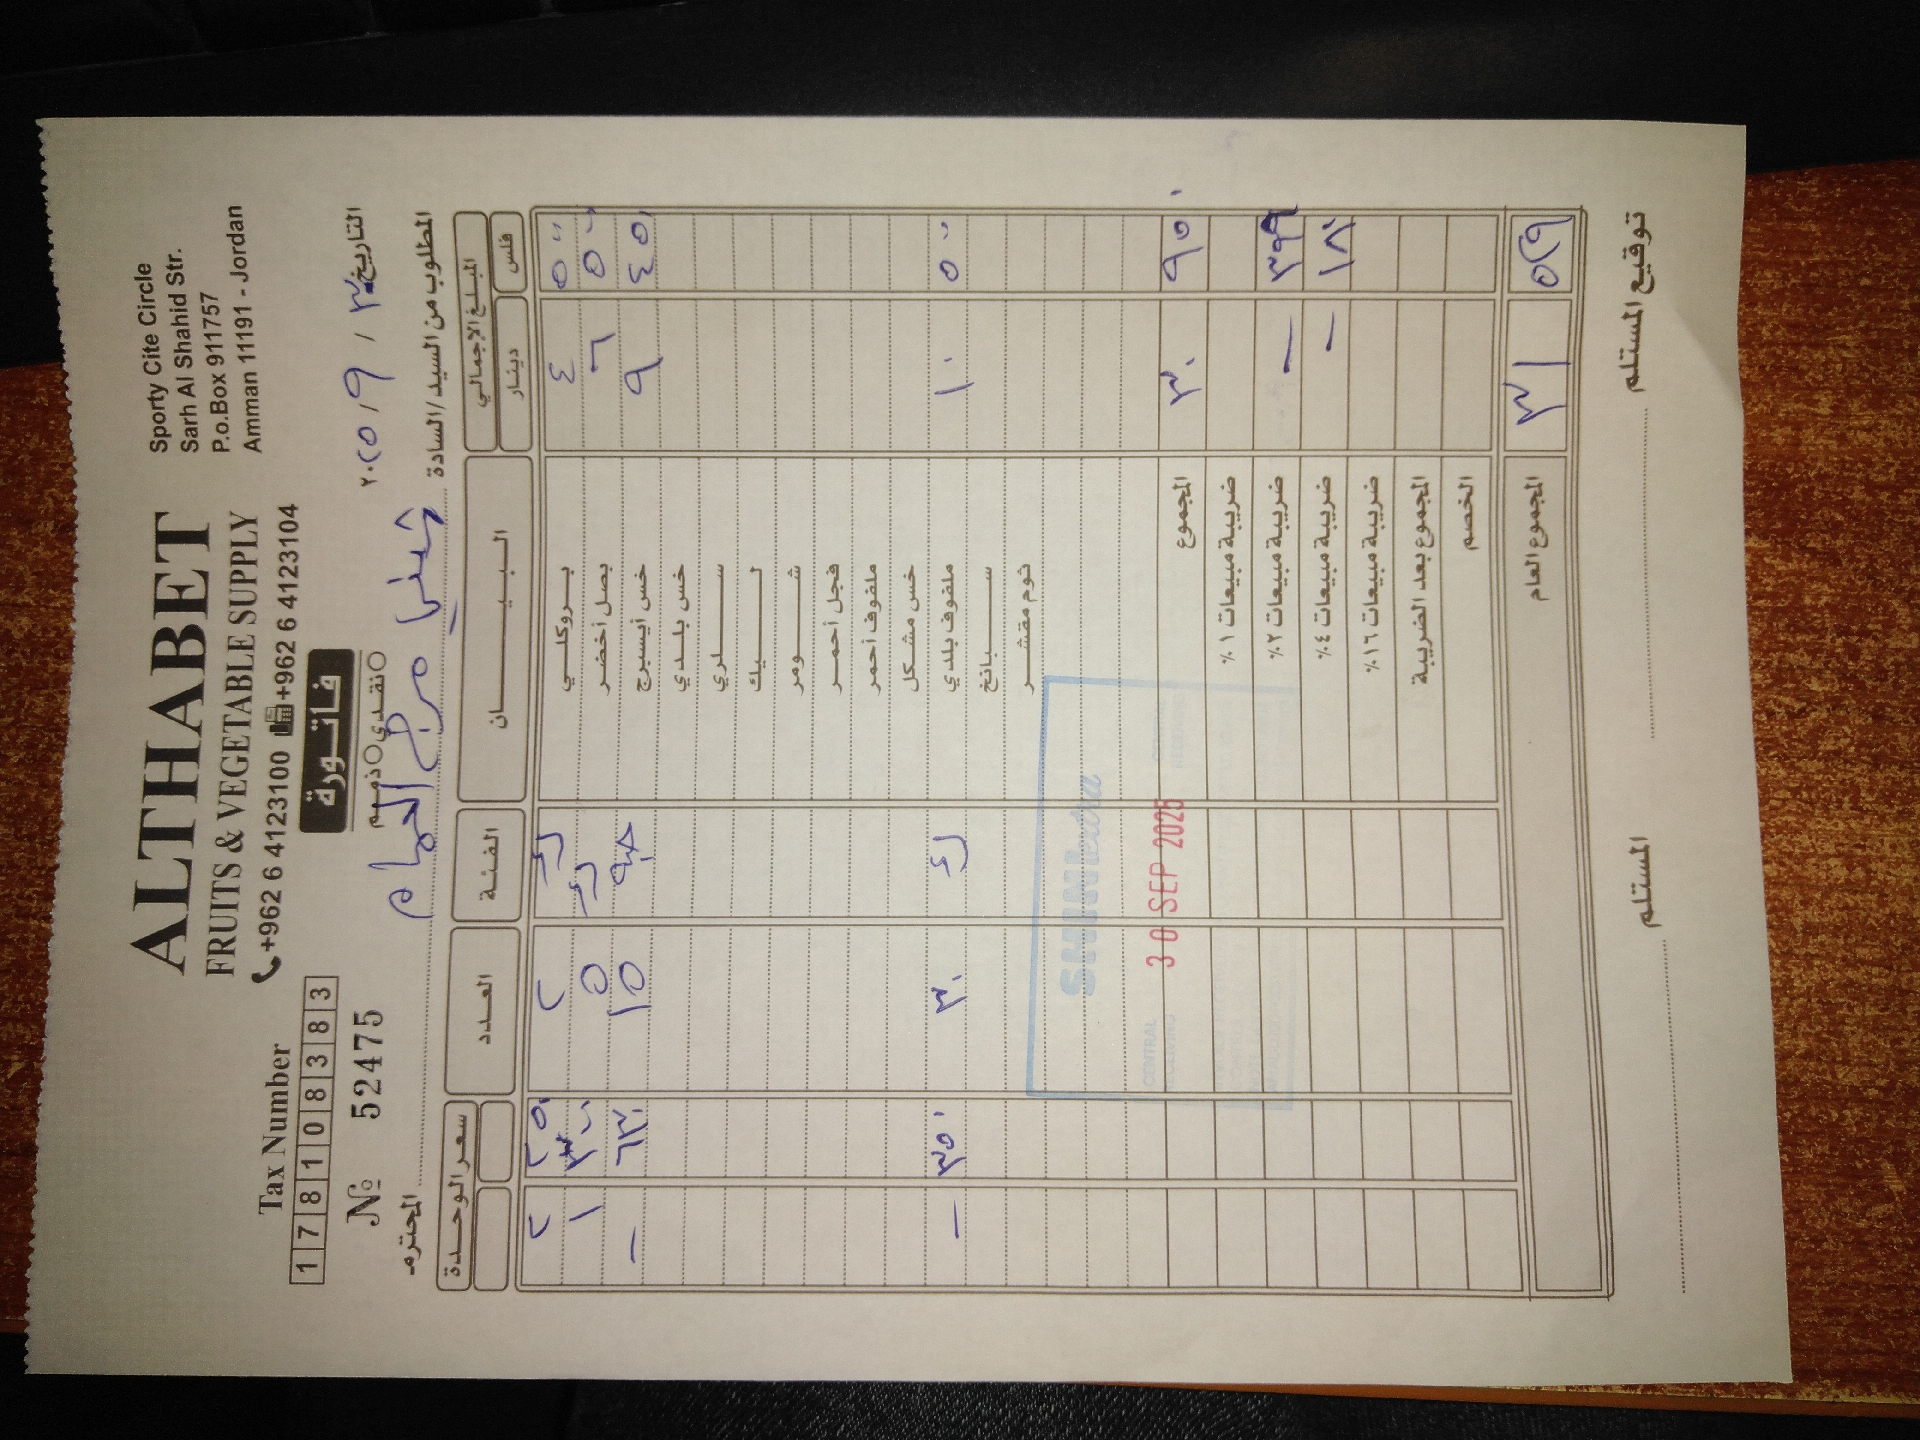 ALTHABET
FRUITS & VEGETABLE SUPPLY
+962 6 4123100 +962 6 4123104
Sporty Cite Circle
Sarh Al Shahid Str.
P.o.Box 911757
Amman 11191 - Jordan
Tax Number
178108383
فاتورة
№ 52475
نقدي ذمم
التاريخ ٣٠ / ٩ / ٢٠٢٥
المطلوب من السيد/السادة مرج الحمام المحترم
المبلغ الإجمالي البيان الفئة العدد سعر الوحدة
فلس دينار
٥٠٠ ٤ بروكلي ك ٢ ٢٥٠ ٢
٥٠٠ ٦ بصل أخضر ك ٥ ٣٠٠ ١
٤٥٠ ٩ خس أيسبرج حبه ١٥ ٦٣٠ -
خس بلدي
سلري
ليك
شومر
فجل أحمر
ملفوف أحمر
خس مشكل
٥٠٠ ١٠ ملفوف بلدي ك ٣٠ ٣٥٠ -
سبانخ
ثوم مقشر
SHINI extra
CENTRAL
30 SEP 2025
٩٥٠ ٣٠ المجموع
ضريبة مبيعات ١٪
٣٩٩ - ضريبة مبيعات ٢٪
١٨٠ - ضريبة مبيعات ٤٪
ضريبة مبيعات ١٦٪
المجموع بعد الضريبة
الخصم
٥٢٩ ٣١ المجموع العام
توقيع المستلم المستلم